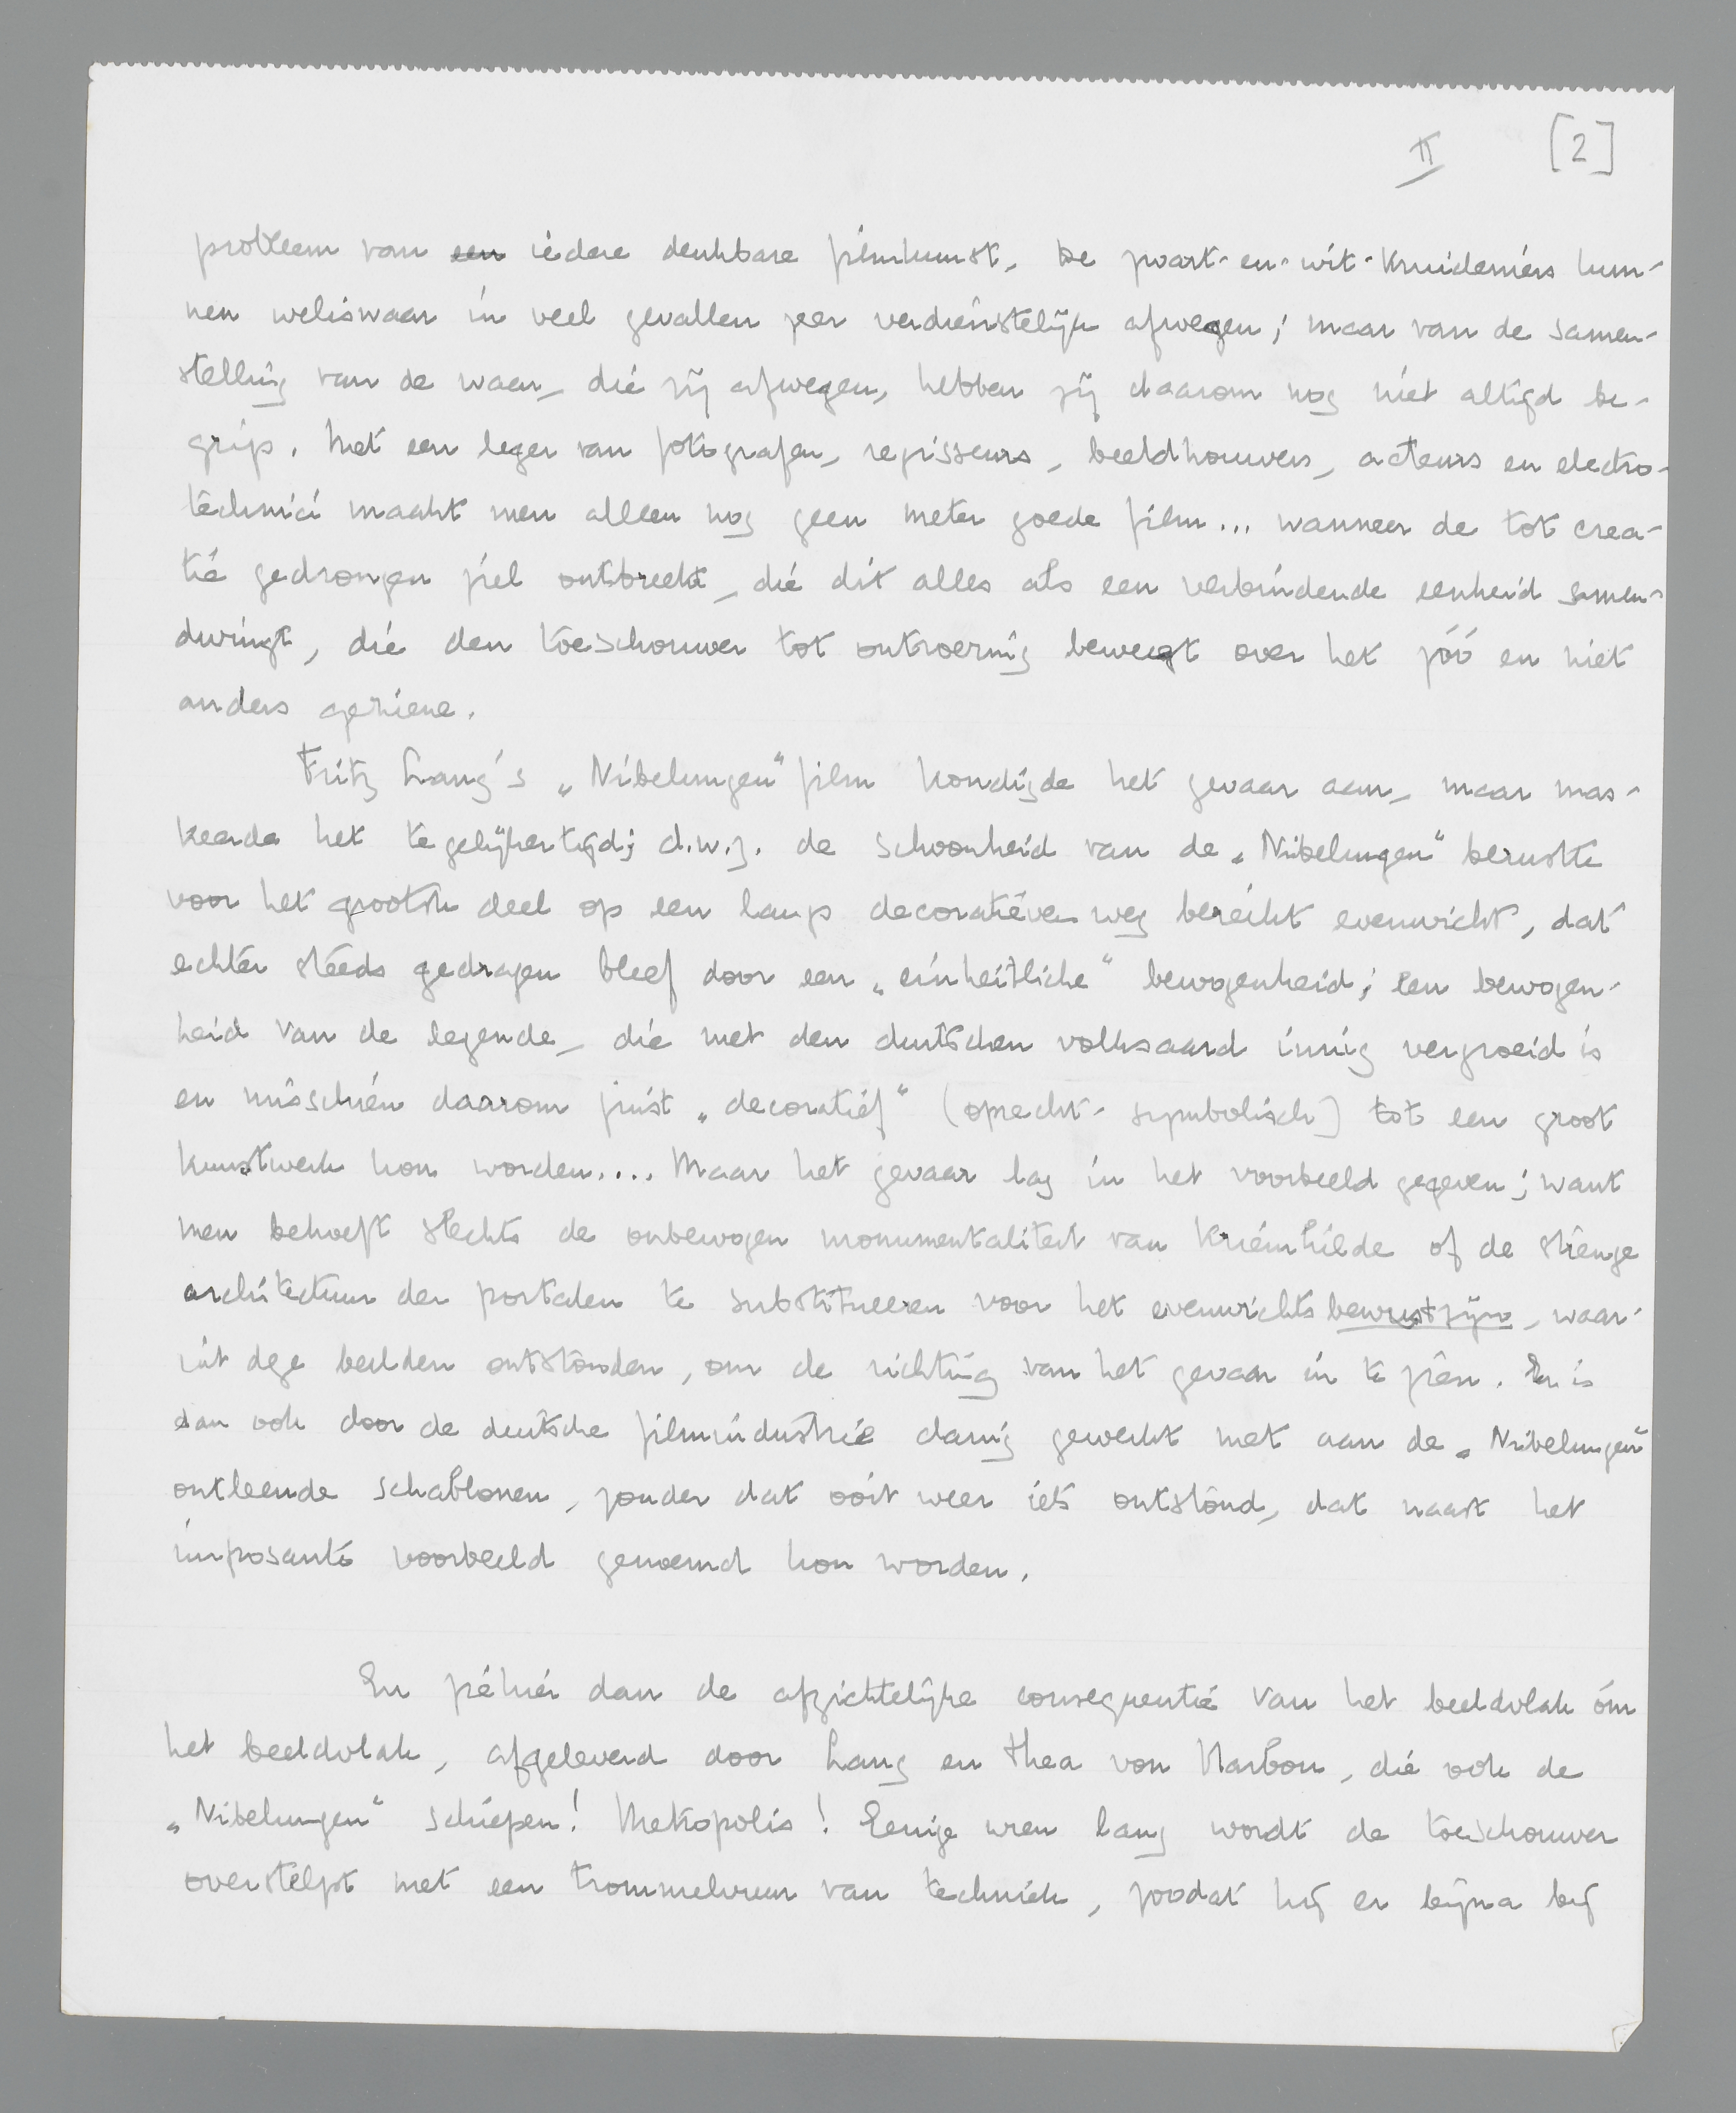 II [2]
probleem van een iedere denkbare filmkunst. De zwart-en-wit-kruideniers kun-
nen weliswaar in veel gevallen zeer verdienstelijk afwegen; maar van de samen-
stelling van de waar, die zij afwegen, hebben zij daarom nog niet altijd be-
grip. Met een leger van fotografen, regisseurs, beeldhouwers, acteurs en electro-
technici maakt men alleen nog geen meter goede film... wanneer de tot crea-
tie gedrongen ziel ontbreekt, die dit alles als een verbindende eenheid samen-
dwingt, die den toeschouwer tot ontroering beweegt over het zóó en niet
anders geziene.
Fritz Lang's „Nibelungen" film kondigde het gevaar aan, maar mas-
keerde het tegelijkertijd; d.w.z. de schoonheid van de „Nibelungen" berustte
voor het grootste deel op een langs decoratieven weg bereikt evenwicht, dat
echter steeds gedragen bleef door een „einheitliche" bewogenheid; een bewogen-
heid van de legende, die met den duitschen volksaard innig vergroeid is
en misschien daarom juist „decoratief" (oprecht-symbolisch) tot een groot
kunstwerk kon worden.... Maar het gevaar lag in het voorbeeld gegeven; want
men behoeft slechts de onbewogen monumentaliteit van Kriemhilde of de strenge
architectuur der portalen te substitueeren voor het evenwichtsbewustzijn, waar-
uit deze beelden ontstonden, om de richting van het gevaar in te zien. Er is
dan ook door de duitsche filmindustrie danig gewerkt met aan de „Nibelungen"
ontleende schablonen, zonder dat ooit weer iets ontstond, dat naast het
imposante voorbeeld genoemd kon worden.
En zéhier dan de afzichtelijke consequentie van het beeldvlak óm
het beeldvlak, afgeleverd door Lang en Thea von Harbou, die ook de
„Nibelungen" schiepen! Metropolis! Eenige uren lang wordt de toeschouwer
overstelpt met een trommelvuur van techniek, zoodat hij er bijna bij